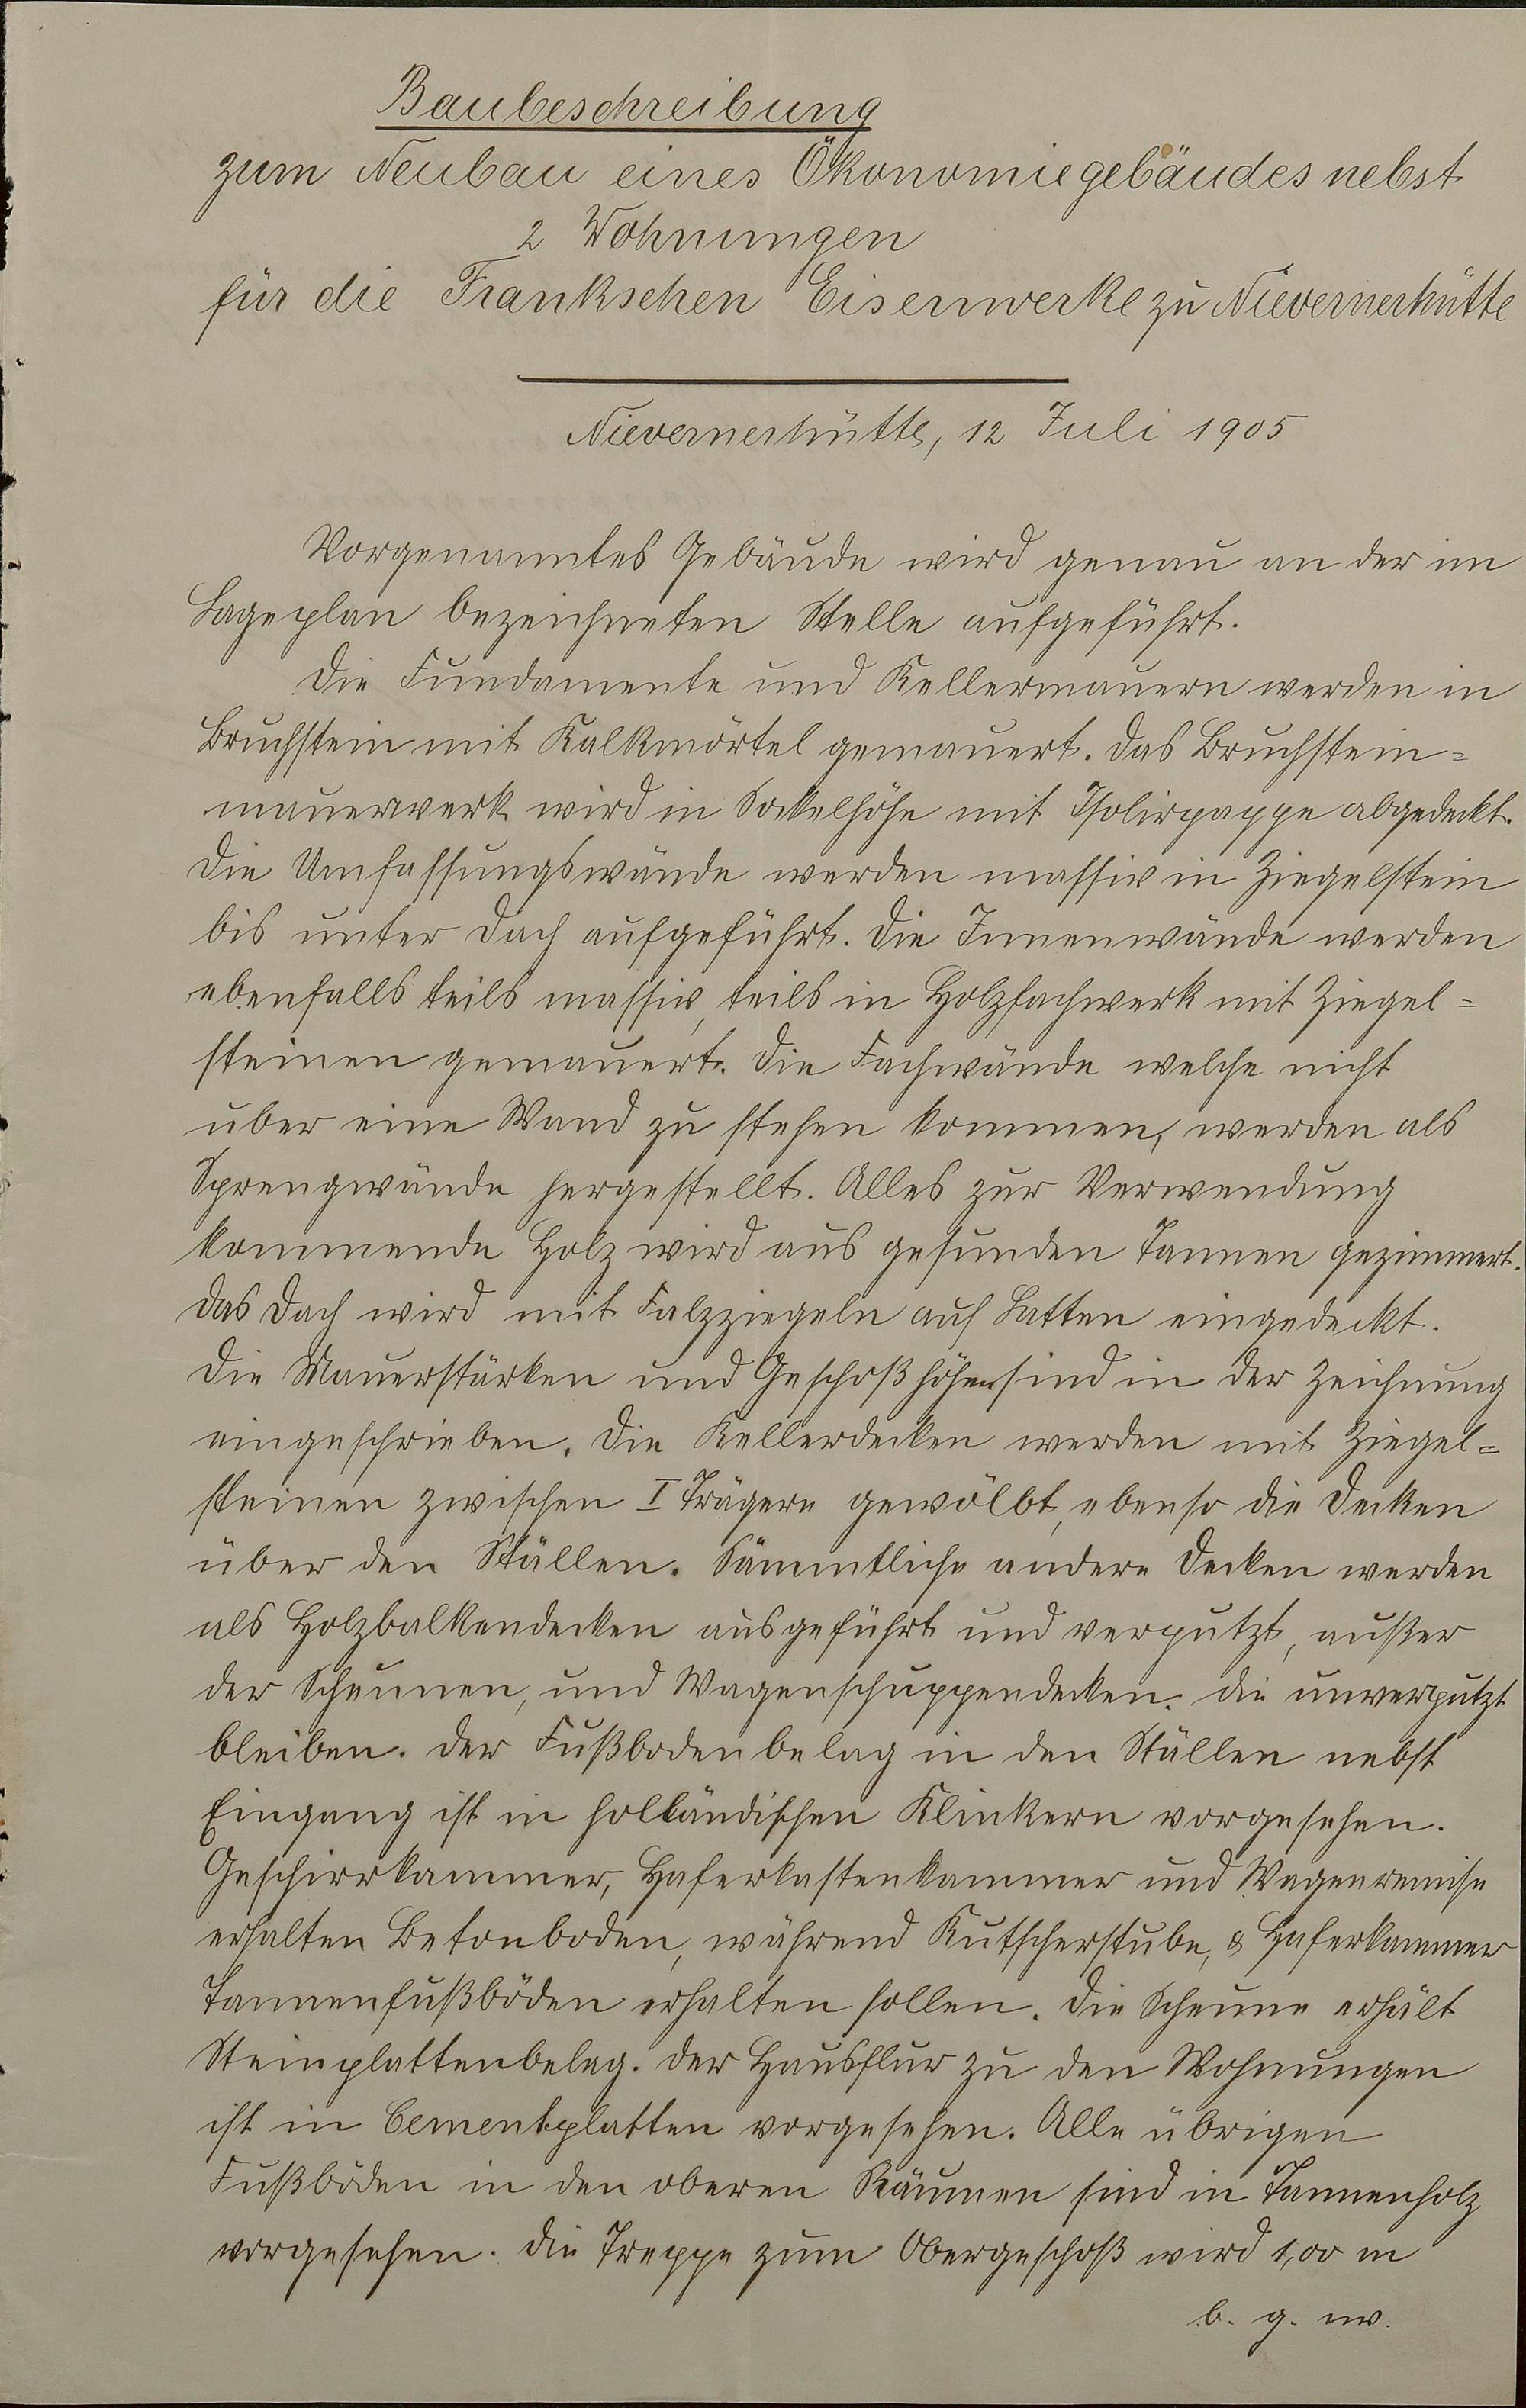 Baubeschreibung
zum Neubau eines Ökonomiegebäudes nebst
2 Wohnungen
für die Frankschen Eisenwerke zu Nievernerhütte
Nievernerhütte, 12 Juli 1905
Vorgenanntes Gebäude wird genau an der im
Lageplan bezeichneten Stelle aufgeführt.
Die Fundamente und Kellermauern werden in
Bruchstein mit Kalkmörtel gemauert. Das Bruchstein=
mauerwerk wird in Sockelhöhe mit Isolirpappe abgedeckt.
Die Umfassungswände werden massiv in Ziegelstein
bis unter Dach aufgeführt. Die Innenwände werden
ebenfalls teils massiv, teils in Holzfachwerk mit Ziegel=
steinen gemauert. Die Fachwände welche nicht
über eine Wand zu stehen kommen, werden als
Sprengwände hergestellt. Alles zur Verwendung
kommende Holz wird aus gesunden Tannen gezimmert.
Das Dach wird mit Falzziegeln auf Latten eingedeckt.
Die Mauerstärken und Geschoßhöhen sind in der Zeichnung
eingeschrieben. Die Kellerdecken werden mit Ziegel=
steinen zwischen I Trägern gewölbt, ebenso die Decken
über den Ställen. Sämmtliche andere Decken werden
als Holzbalkendecken ausgeführt und verputzt, außer
der Scheunen, und Wagenschuppendecken. die unverputzt
bleiben. Der Fußbodenbelag in den Ställen nebst
Eingang ist in holländischen Klinkern vorgesehen.
Geschirrkammer, Haferkastenkammer und Wagenremise
erhalten Betonboden, während Kutscherstube, & Haferkammer
Tannenfußböden erhalten sollen. Die Scheune erhält
Steinplattenbelag. Der Hausflur zu den Wohnungen
ist in Cementplatten vorgesehen. Alle übrigen
Fußböden in den oberen Räumen sind in Tannenholz
vorgesehen. Die Treppe zum Obergeschoß wird 1,00 m
b. g. w.